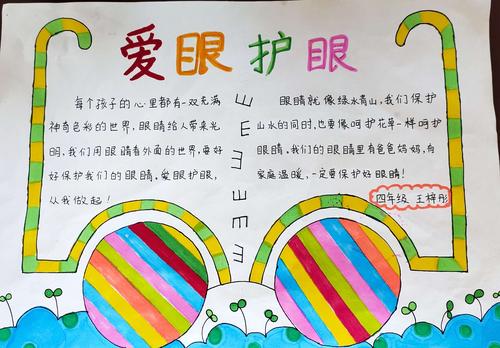 爱眼护眼
每个孩子的心里都有一双充满
神奇色彩的世界,眼睛给人带来光
明,我们用眼睛看外面的世界,要好
好保护我们的眼睛。爱眼护眼,
从我做起!
E
E
E
E
E
E
眼睛就像绿水青山,我们保护
山水的同时,也要像呵护花草一样呵护
眼睛。我们的眼睛里有爸爸妈妈,有
家庭温暖,一定要保护好眼睛!
四年级 王梓彤